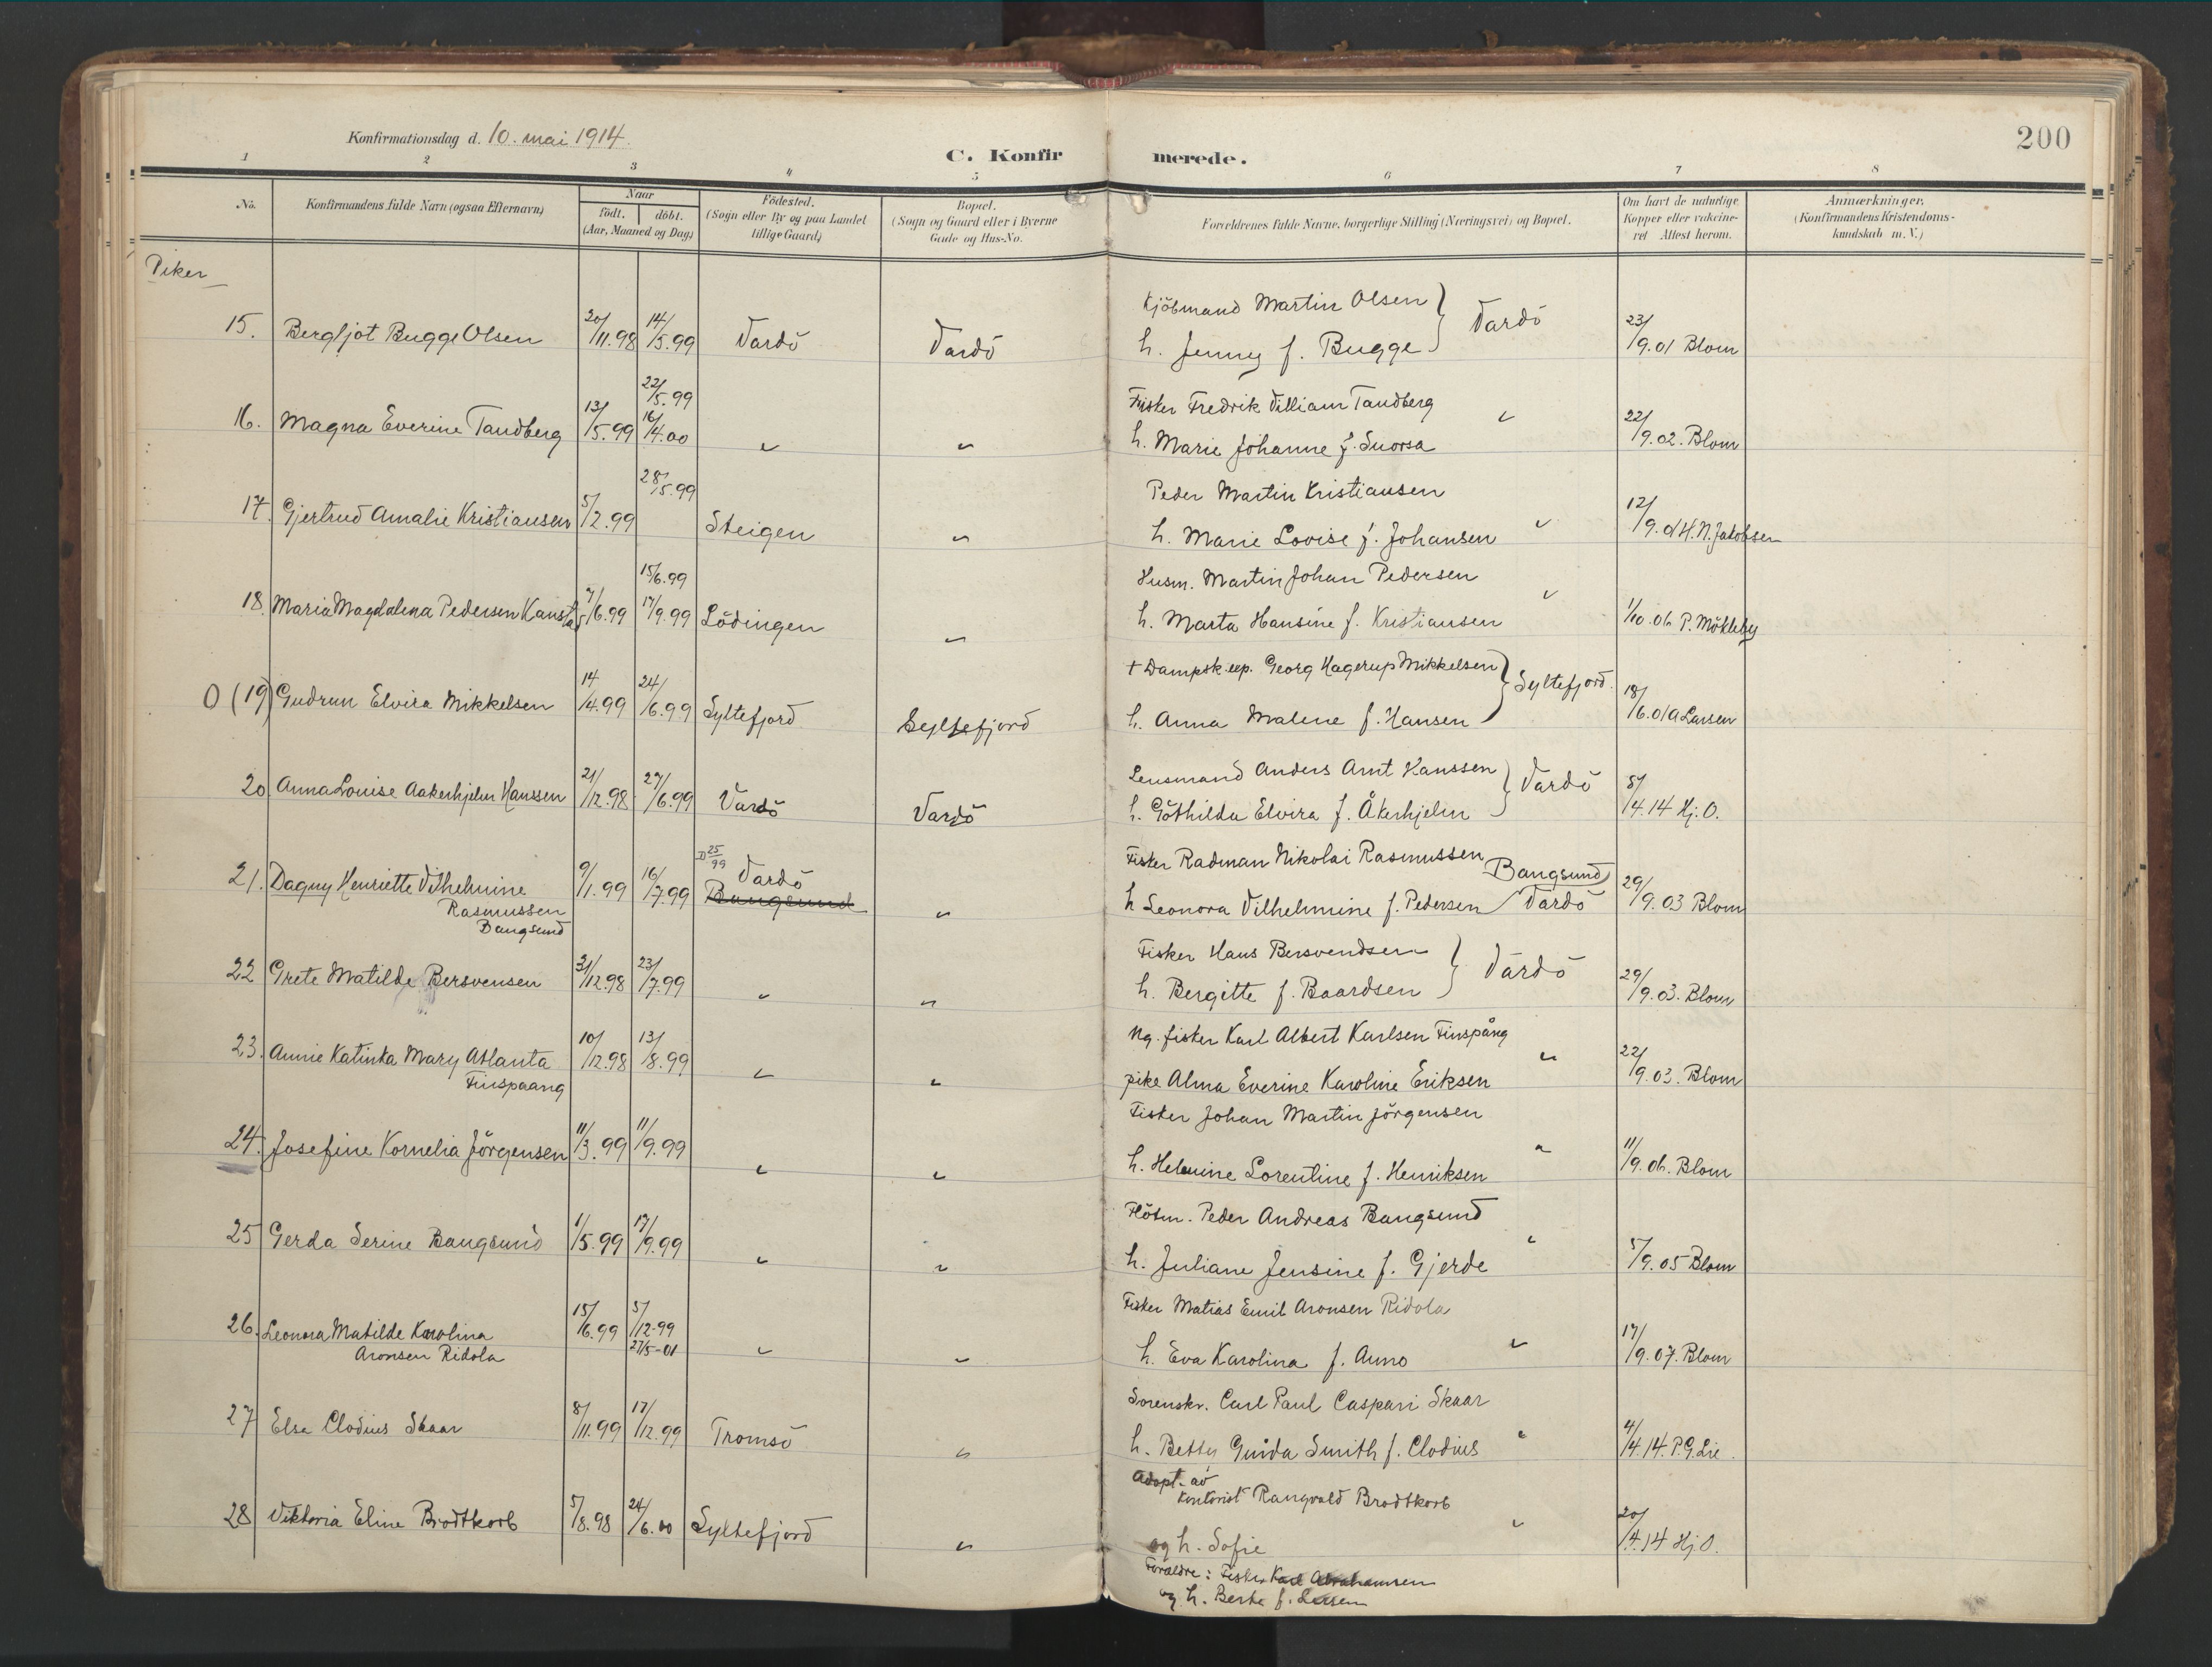 Konfirmationsdag d. 10. mai 1914.
C. Konfirmerede.
200
1 2 3 4 5 6 7 8
No.
Konfirmandens fulde Navn (ogsaa Efternavn)
Naar
födt. döbt.
(Aar, Maaned og Dag)
Födested.
(Sogn eller By og paa Landet
tillige Gaard)
Bopæl.
(Sogn og Gaard eller i Byerne
Gade og Hus-No.
Forældrenes fulde Navne, borgerlige Stilling (Næringsvei) og Bopæl.
Om havt de naturlige
Kopper eller vakcine-
ret Attest herom.
Anmærkninger.
(Konfirmandens Kristendoms-
kundskab m. V.)
Piker
Kjöbmand Martin Olsen
15. Bergljot Bugge Olsen 20/11.98 14/5.99 Vardö Vardö h. Jenny f. Bugge } Vardö 23/9.01 Blom
22/5.99 Fisker Fredrik Villiam Tandberg
16. Magna Everine Tandberg 13/5.99 16/4.00 " " h. Marie Johanne f. Suorsa " 22/9.02. Blom
28/5.99 Peder Martin Kristiansen
17. Gjertrud Amalie Kristiansen 5/2.99 Steigen " h. Marie Lovise f. Johansen " 12/9.01 H. N. Jakobsen
15/6.99 Husm. Martin Johan Pedersen
18. Maria Magdalena Pedersen Kanstad 7/6.99 17/9.99 Lödingen " h. Marta Hansine f. Kristiansen " 1/10.06 P. Mökleby
† Dampsk.exp. Georg Hagerup Mikkelsen
0 (19) Gudrun Elvira Mikkelsen 14/4.99 24/6.99 Syltefjord Syltefjord h. Anna Malene f. Hansen } Syltefjord. 18/6.01 A Larsen
Lensmand Anders Arnt Hanssen
20. Anna Louise Aakerhjelm Hanssen 21/12.98 27/6.99 Vardö Vardö h. Göthilda Elvira f. Åkerhjelm } Vardö 8/4.14 Hj. O.
D 25/99 Vardö Fisker Radman Nikolai Rasmussen Bangsund
21. Dagny Henriette Vilhelmine 9/1.99 16/7.99 Bangsund " h Leonora Vilhelmine f. Pedersen Vardö 29/9.03 Blom
Rasmussen
Bangsund
Fisker Hans Bersvendsen
22 Grete Matilde Bersvensen 31/12.98 23/7.99 " " h. Bergitte f. Baardsen } Vardö 29/9.03. Blom
Ng. fisker Karl Albert Karlsen Finspång
23. Annie Katinka Mary Atlanta 10/12.98 13/8.99 " " pike Alma Everine Karoline Eriksen " 22/9.03. Blom
Finspaang
Fisker Johan Martin Jörgensen
24. Josefine Kornelia Jörgensen 11/3.99 11/9.99 " " h. Helmine Lorentine f. Henriksen " 11/9.06. Blom
Peder Andreas Bangsund
25 Gerda Serine Bangsund 1/5.99 17/9.99 " " h. Juliane Jensine f. Gjerde " 5/9.05 Blom
Fisker Matias Emil Aronsen Ridola
26. Leonora Matilde Karolina 15/6.99 3/12-99 " " h. Eva Karolina f. Anno " 17/9.07. Blom
Aronsen Ridola 27/5-01
Sorenskr. Carl Paul Caspari Skaar
27 Else Clodius Skaar 8/11.99 17/12.99 Tromsö " h. Betsy Guida Smith f. Clodius " 4/4.14. P. G. Lie.
Adopt. av
kontorist Rangvald Brodtkorb
28 Viktoria Eline Brodtkorb 5/8.98 24/6.00 Syltefjord " og h. Sofie " 20/4.14 Hj. O.
Forældre: Fisker Karl Abrahamsen
og h. Berte f. Larsen